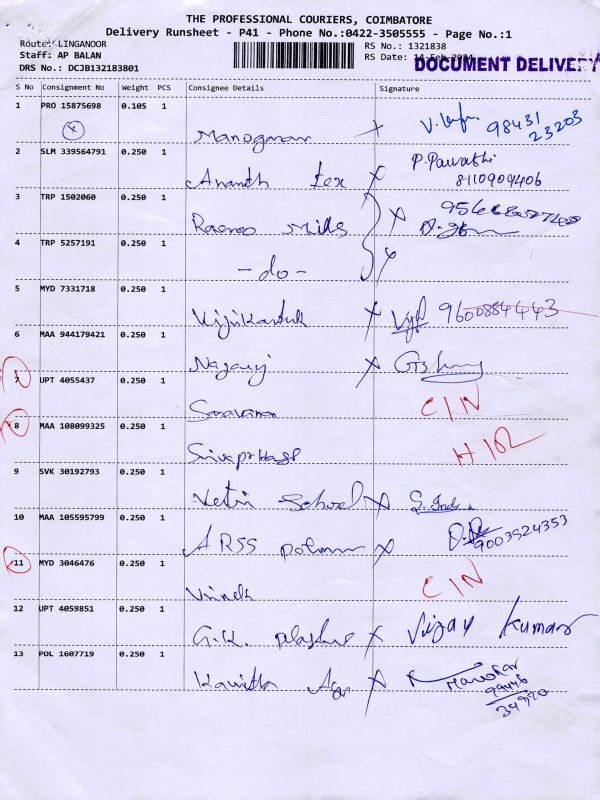 THE PROFESSIONAL COURIERS, COIMBATORE
Delivery Runsheet - P41 - Phone No.:0422-3505555 - Page No.:1
Route: LINGANOOR
RS No.: 1321838
Staff: AP BALAN
RS Date: 14-Feb-2024
DOCUMENT DELIVERY
DRS No.: DCJB132183801
S No Consignment No Weight PCS Consignee Details Signature
1 PRO 15875698 0.105 1
Manogaran x 98431 23203
2 SLM 339564791 0.250 1 P. Pavathi
Ananth Tex x 8110909406
3 TRP 1502060 0.250 1
Mills x
4 TRP 5257191 0.250 1
- do - x
5 MYD 7331718 0.250 1
x 9600884443
6 MAA 944179421 0.250 1
Nagaraj x
7 UPT 4055437 0.250 1
Saravanan C/N
8 MAA 108099325 0.250 1
Sivaprakash
9 SVK 30192793 0.250 1
School x
10 MAA 105595799 0.250 1
ARSS x 9003524353
11 MYD 3046476 0.250 1
C/N
12 UPT 4059851 0.250 1
G.K. x Vijay Kumar
13 POL 1607719 0.250 1
x Manokar
99446
34920